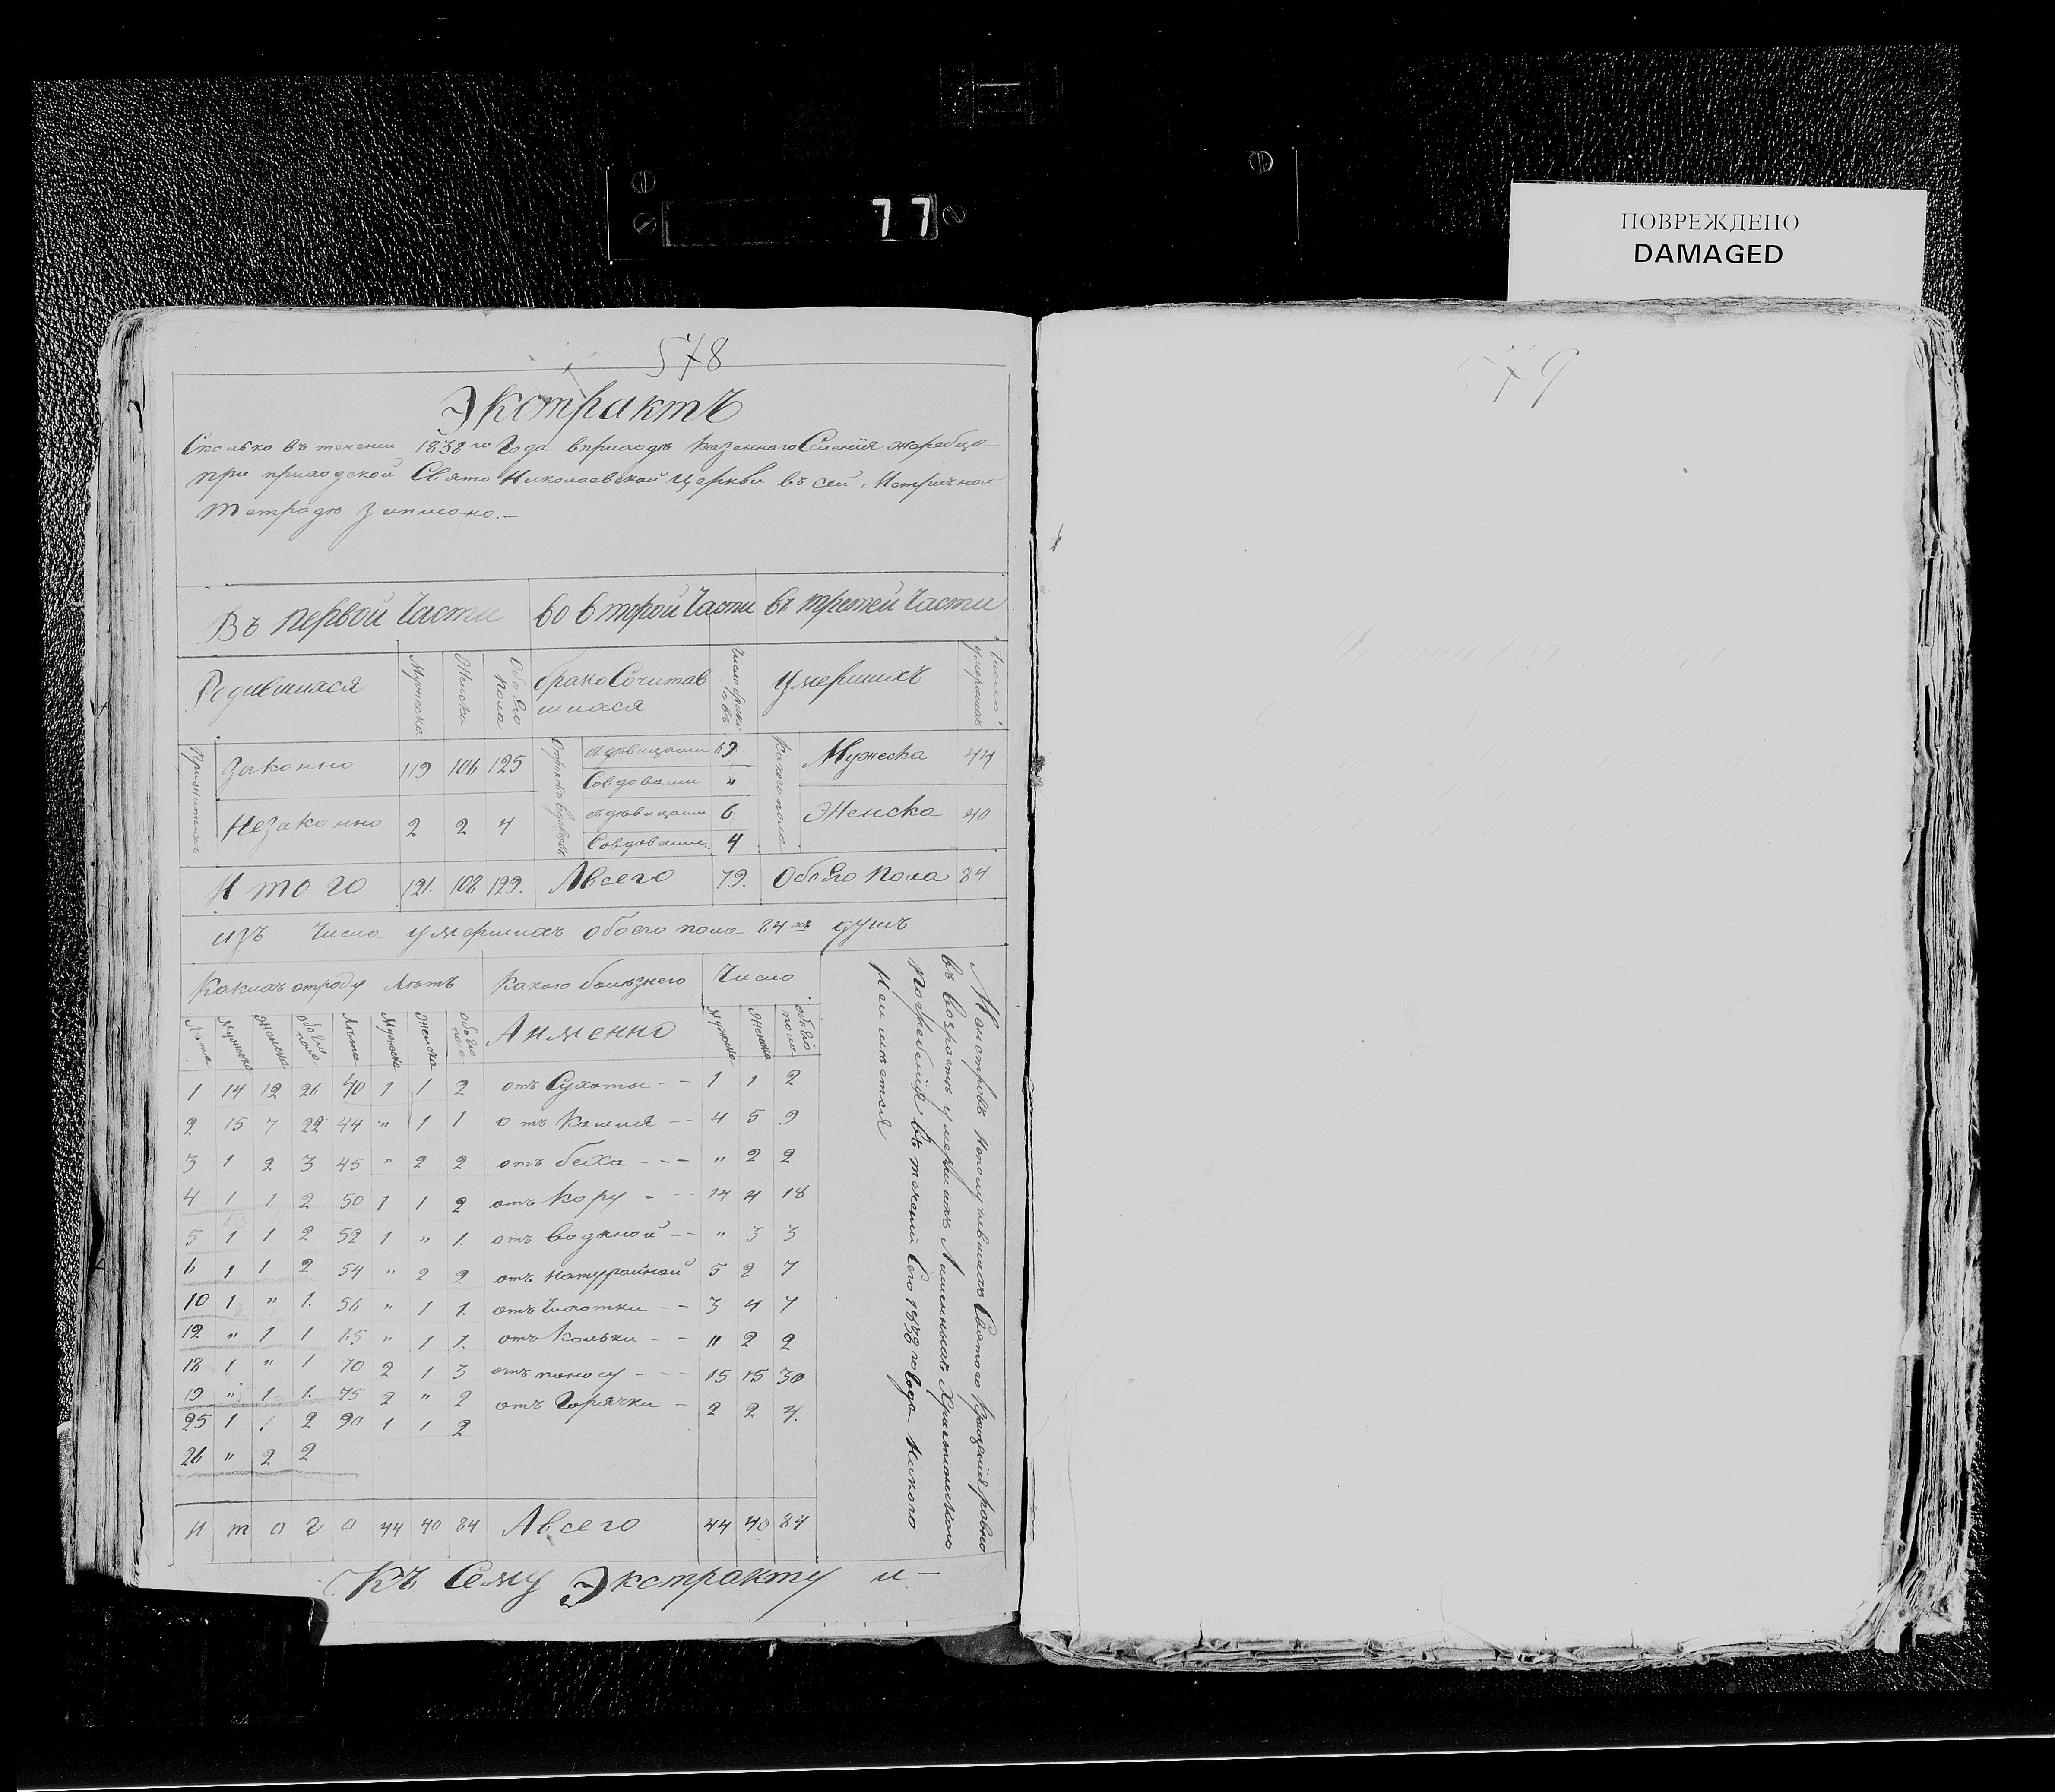 77
ПОВРЕЖДЕНО
DAMAGED
578
Экстрактъ
Сколько въ течении 1838 го Года вприходѣ Казеннаго Селенїя Жеребца
при приходской Свято Николаевской Церкви въ сей Метричной
тетрадѣ записано.—
Въ первой Части во второй Части въ третей Части
Родившихся Мужеска Женска Обоего пола брако Сочитав Число браковъ умершихъ Число умершихъ
шихся
Законно 119 106 125 съ дѣвицами 69 Мужеска 44
Совдовами „
Незаконно 2 2 4 съ дѣвицами 6 Женска 40
Совдовами 4
Какого пола
Итого 121. 108 129. Авсего 79. Обоего Пола 84
изъ Числа умершихъ обоего пола 84 хъ душъ
Какихъ отроду Лѣтъ Какою болѣзнею Число
Лѣта Мужеска Женска Обоего пола Лѣта Мужеска Женска Обоего пола Аименно Мужеска Женска Обоего пола
1 14 12 26 40 1 1 2 отъ Сухоты - - 1 1 2
2 15 7 22 44 „ 1 1 отъ Кашля - - 4 5 9
3 1 2 3 45 „ 2 2 отъ беха - - - „ 2 2
4 1 1 2 50 1 1 2 отъ Кору - - - 14 4 18
5 1 1 2 52 1 „ 1. отъ водяной - - „ 3 3
6 1 1 2 54 „ 2 2 отъ натуральной 5 2 7
10 1 „ 1. 56 „ 1 1. отъ Чихотки - - 3 4 7
12 „ 1 1 65 „ 1 1. отъ Кольки - - „ 2 2
18 1 „ 1 70 2 1 3 отъ поносу - - - 15 15 30
19 „ 1 1. 75 2 „ 2 отъ Горячки - 2 2 4.
25 1 1 2 90 1 1 2
26 „ 2 2
Итого 44 40 84 Авсего 44 40 84
неполучившихъ Святого Крещенїя равно
въ возрастѣ умершихъ Лишенныхъ Христианского
Погребенїя въ течении Сего 1838 го Года Никого
Неимѣется
Къ Сему Экстракту и—
579